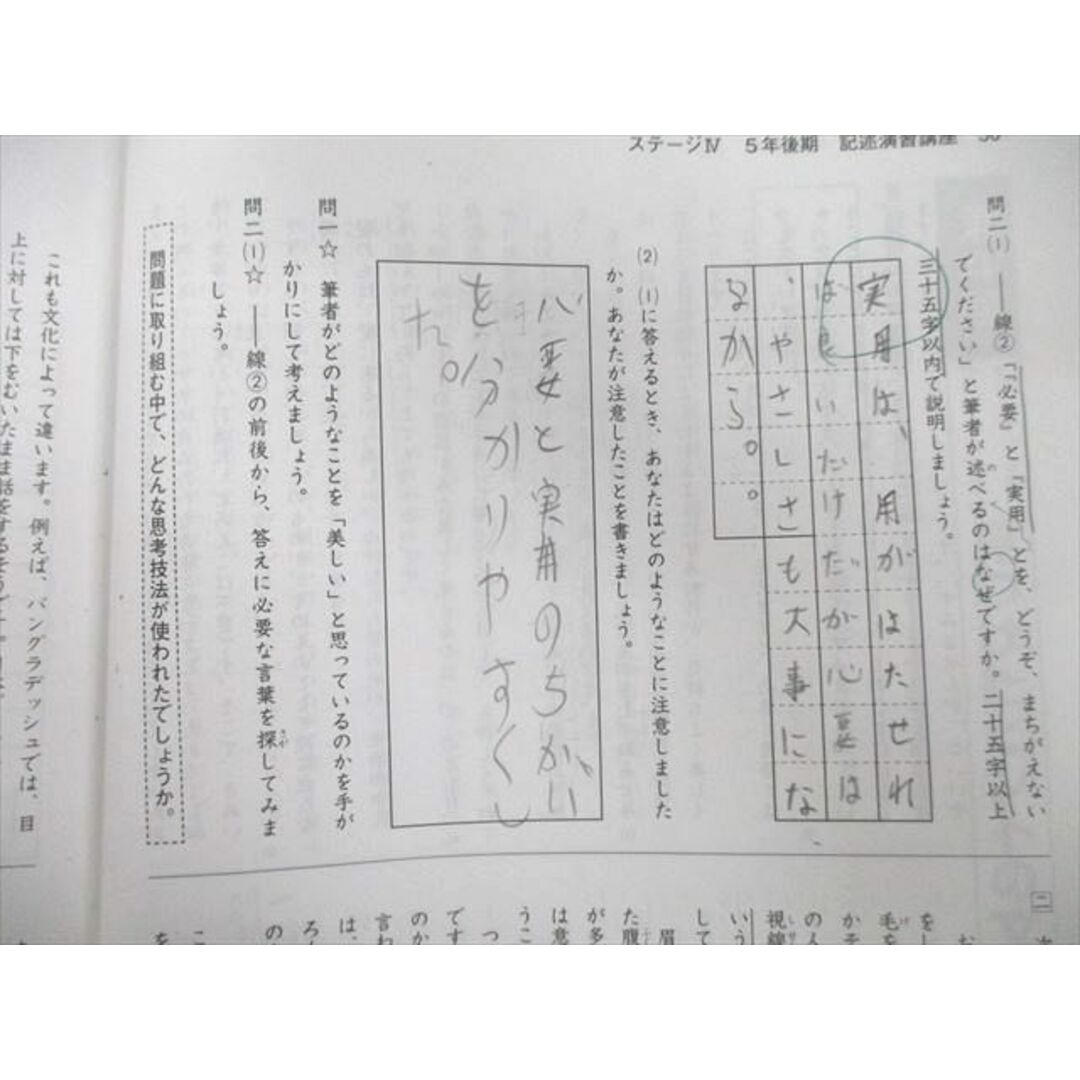 ステージⅣ 5年後期 記述演習講座 30
問二⑴ ――線②「「必要」と「実用」とを、どうぞ、まちがえない
でください」と筆者が述べるのはなぜですか。二十五字以上
三十五字以内で説明しましょう。
実用は、用がはたせれ
ば良いだけだが必要は
、やさしさも大事にな
るから。
⑵ ⑴に答えるとき、あなたはどのようなことに注意しました
か。あなたが注意したことを書きましょう。
必要と実用のちがい
を分かりやすくし
た。
問一☆ 筆者がどのようなことを「美しい」と思っているのかを手が
かりにして考えましょう。
問二⑴☆ ――線②の前後から、答えに必要な言葉を探してみま
しょう。
問題に取り組む中で、どんな思考技法が使われたでしょうか。
これも文化によって違います。例えば、バングラデッシュでは、目
上に対しては下をむいたまま話をするそうです。
二
をし
毛を
かそ
の人
視線
いう
して
眉
た腹
が多
は意
うこ
つ
です
のか
言わ
は、
ろ
の
こ
を